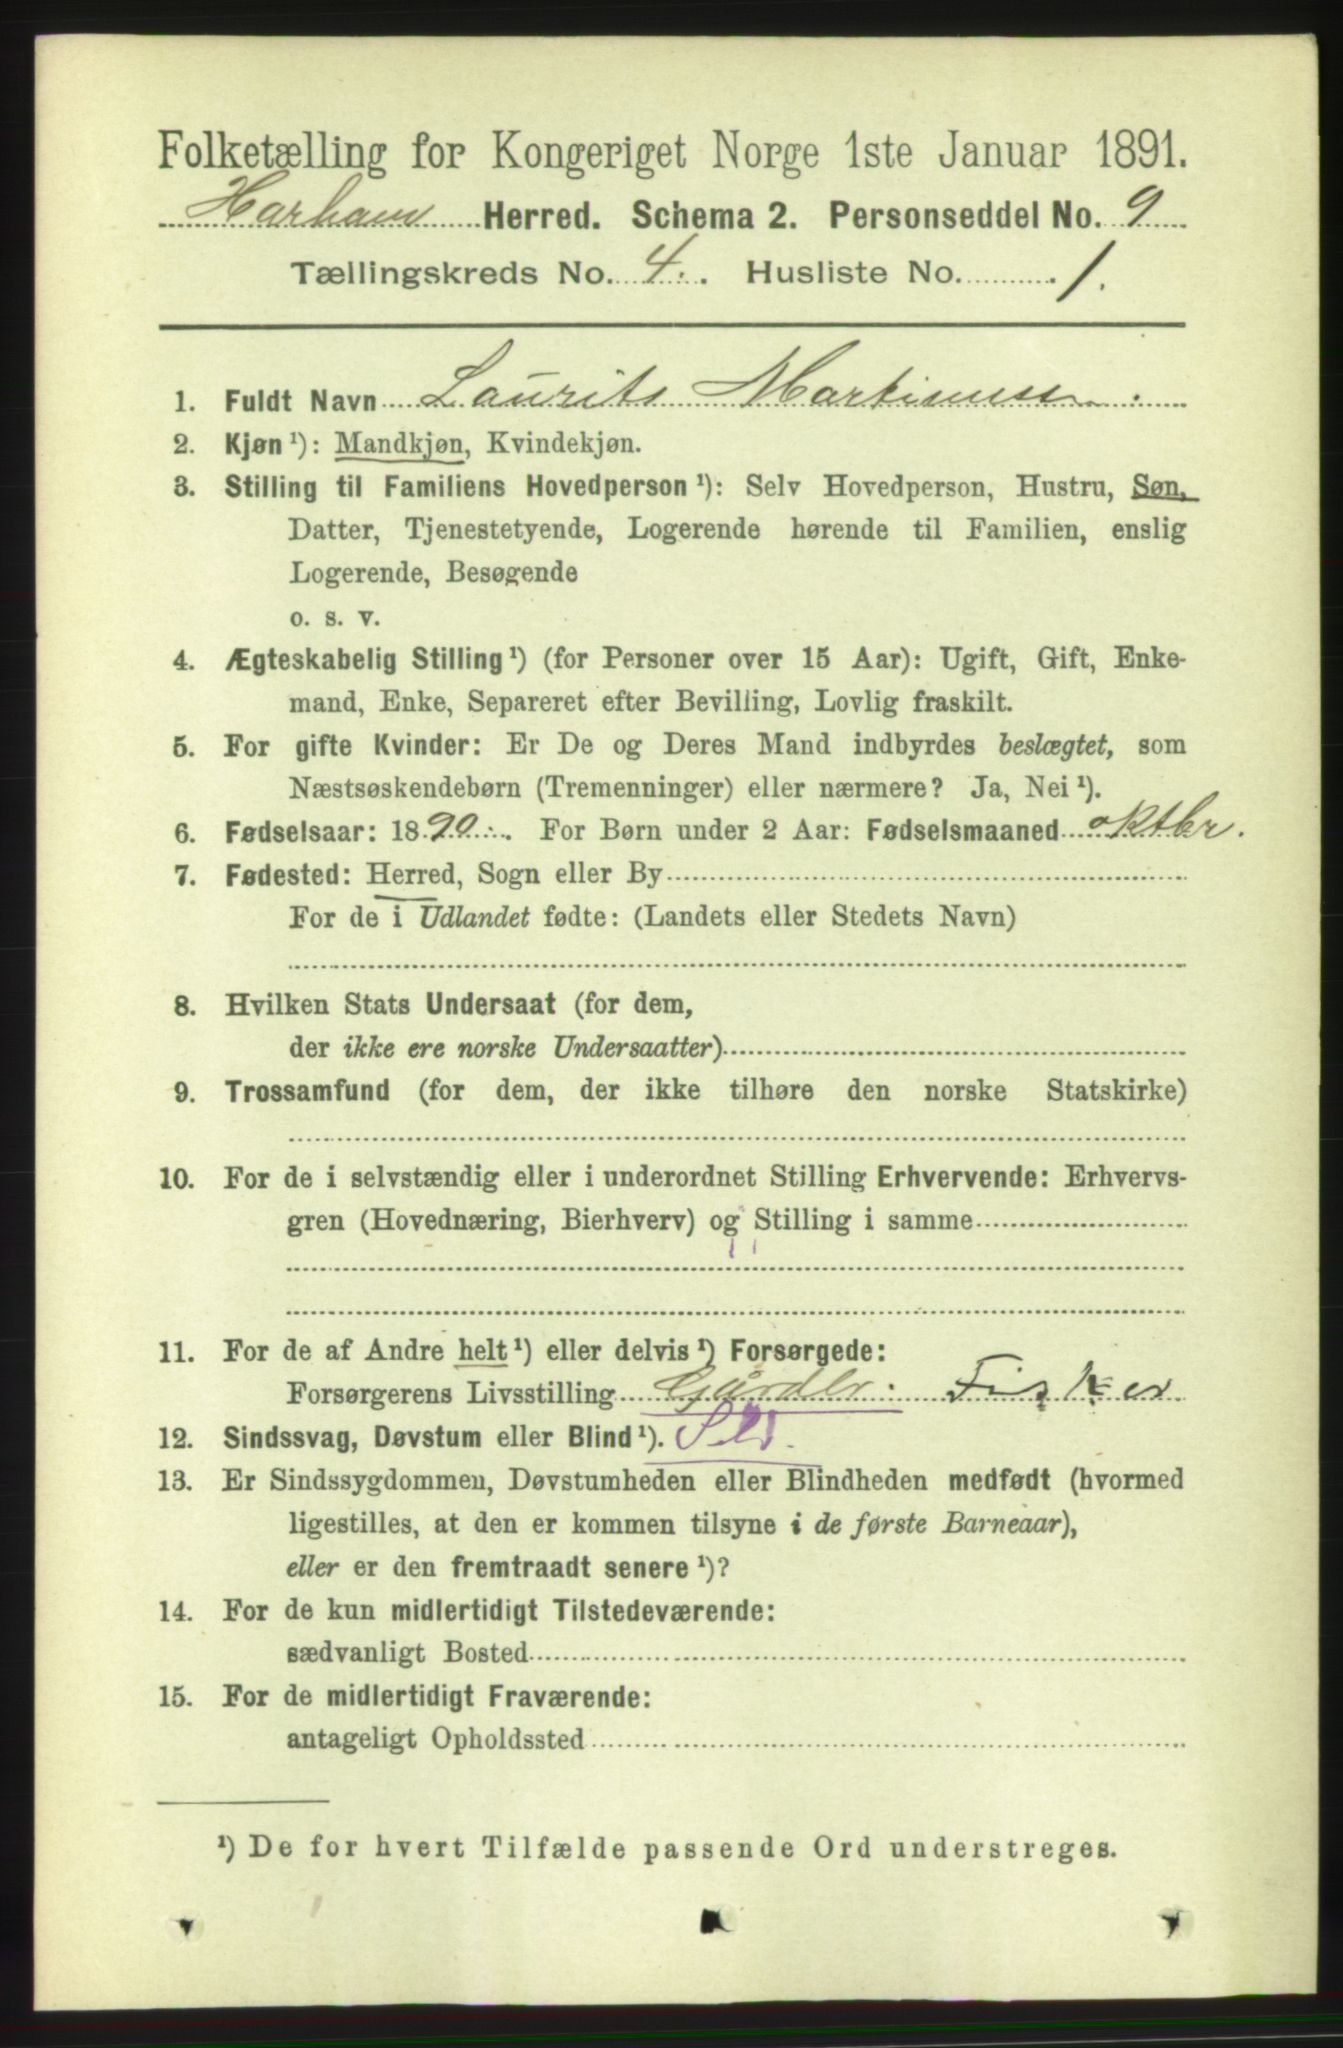 Folketælling for Kongeriget Norge 1ste Januar 1891.
Harham Herred. Schema 2. Personseddel No. 9
Tællingskreds No. 4. Husliste No. 1.
1. Fuldt Navn Laurits Martinussen.
2. Kjøn ¹): Mandkjøn, Kvindekjøn.
3. Stilling til Familiens Hovedperson ¹): Selv Hovedperson, Hustru, Søn,
Datter, Tjenestetyende, Logerende hørende til Familien, enslig
Logerende, Besøgende
o. s. v.
4. Ægteskabelig Stilling ¹) (for Personer over 15 Aar): Ugift, Gift, Enke-
mand, Enke, Separeret efter Bevilling, Lovlig fraskilt.
5. For gifte Kvinder: Er De og Deres Mand indbyrdes beslægtet, som
Næstsøskendebørn (Tremenninger) eller nærmere? Ja, Nei ¹).
6. Fødselsaar: 1890. For Børn under 2 Aar: Fødselsmaaned oktbr.
7. Fødested: Herred, Sogn eller By
For de i Udlandet fødte: (Landets eller Stedets Navn)
8. Hvilken Stats Undersaat (for dem,
der ikke ere norske Undersaatter)
9. Trossamfund (for dem, der ikke tilhøre den norske Statskirke)
10. For de i selvstændig eller i underordnet Stilling Erhvervende: Erhvervs-
gren (Hovednæring, Bierhverv) og Stilling i samme
11. For de af Andre helt ¹) eller delvis ¹) Forsørgede:
Forsørgerens Livsstilling Gårdbr. Fisker
12. Sindssvag, Døvstum eller Blind ¹).
13. Er Sindssygdommen, Døvstumheden eller Blindheden medfødt (hvormed
ligestilles, at den er kommen tilsyne i de første Barneaar),
eller er den fremtraadt senere ¹)?
14. For de kun midlertidigt Tilstedeværende:
sædvanligt Bosted
15. For de midlertidigt Fraværende:
antageligt Opholdssted
¹) De for hvert Tilfælde passende Ord understreges.